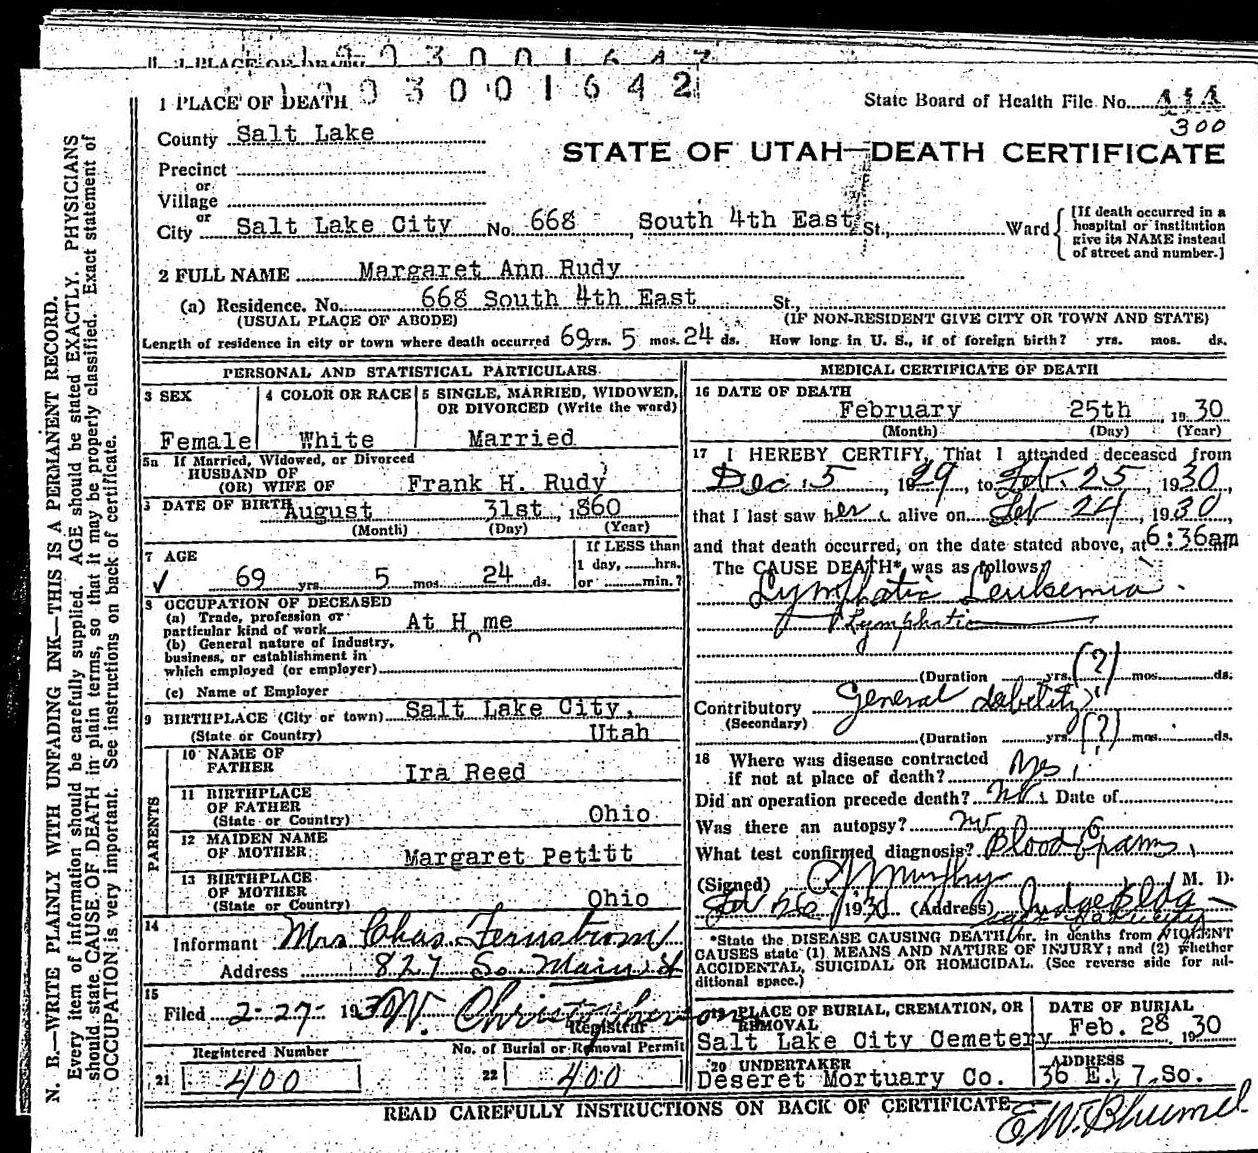 1 PLACE OF DEATH
1 9 3 0 0 1 6 4 2
State Board of Health File No.
300
County Salt Lake
STATE OF UTAH—DEATH CERTIFICATE
Precinct
or
Village
or
City Salt Lake City No. 668 South 4th East St., Ward
[If death occurred in a
hospital or institution
give its NAME instead
of street and number.]
2 FULL NAME Margaret Ann Rudy
(a) Residence. No. 668 South 4th East St,
(USUAL PLACE OF ABODE) (IF NON-RESIDENT GIVE CITY OR TOWN AND STATE)
Length of residence in city or town where death occurred 69 yrs. 5 mos. 24 ds. How long in U. S., if of foreign birth? yrs. mos. ds.
PERSONAL AND STATISTICAL PARTICULARS
3 SEX
Female
4 COLOR OR RACE
White
5 SINGLE, MARRIED, WIDOWED,
OR DIVORCED (Write the word)
Married
5a If Married, Widowed, or Divorced
HUSBAND OF
(OR) WIFE OF Frank H. Rudy
DATE OF BIRTH August 31st, 1860
(Month) (Day) (Year)
7 AGE
69 yrs. 5 mos. 24 ds.
If LESS than
1 day, hrs.
or min.?
8 OCCUPATION OF DECEASED
(a) Trade, profession or
particular kind of work At Home
(b) General nature of industry,
business, or establishment in
which employed (or employer)
(c) Name of Employer
9 BIRTHPLACE (City or town) Salt Lake City,
(State or Country) Utah
PARENTS
10 NAME OF
FATHER Ira Reed
11 BIRTHPLACE
OF FATHER
(State or Country) Ohio
12 MAIDEN NAME
OF MOTHER Margaret Petitt
13 BIRTHPLACE
OF MOTHER
(State or Country) Ohio
14
Informant Mrs Chas. Fernstrom
Address 827 So. Main St
15
Filed 2-27- 1930 W. Christopherson
Registrar
Registered Number
21 400
No. of Burial or Removal Permit
22 400
MEDICAL CERTIFICATE OF DEATH
16 DATE OF DEATH
February 25th 1930
(Month) (Day) (Year)
17 I HEREBY CERTIFY, That I attended deceased from
Dec. 5, 1929, to Feb. 25, 1930,
that I last saw her alive on Feb 24, 1930,
and that death occurred, on the date stated above, at 6:36am
The CAUSE DEATH* was as follows:
Lymphatic Leukemia
Lymphatic
(Duration yrs. (?) mos. ds.
Contributory General debility
(Secondary)
(Duration yrs. (?) mos. ds.
18 Where was disease contracted
if not at place of death? Yes
Did an operation precede death? No Date of
Was there an autopsy? no
What test confirmed diagnosis? Blood
(Signed) Murphy M. D.
Feb 26, 1930 (Address) Judge Bldg
*State the DISEASE CAUSING DEATH, or, in deaths from VIOLENT
CAUSES state (1) MEANS AND NATURE OF INJURY; and (2) whether
ACCIDENTAL, SUICIDAL OR HOMICIDAL. (See reverse side for ad-
ditional space.)
19 PLACE OF BURIAL, CREMATION, OR
REMOVAL
Salt Lake City Cemetery
DATE OF BURIAL
Feb. 28 1930
20 UNDERTAKER
Deseret Mortuary Co.
ADDRESS
36 E. 7. So.
READ CAREFULLY INSTRUCTIONS ON BACK OF CERTIFICATE
N. B.—WRITE PLAINLY WITH UNFADING INK—THIS IS A PERMANENT RECORD.
Every item of information should be carefully supplied. AGE should be stated EXACTLY. PHYSICIANS
should state CAUSE OF DEATH in plain terms, so that it may be properly classified. Exact statement of
OCCUPATION is very important. See instructions on back of certificate.